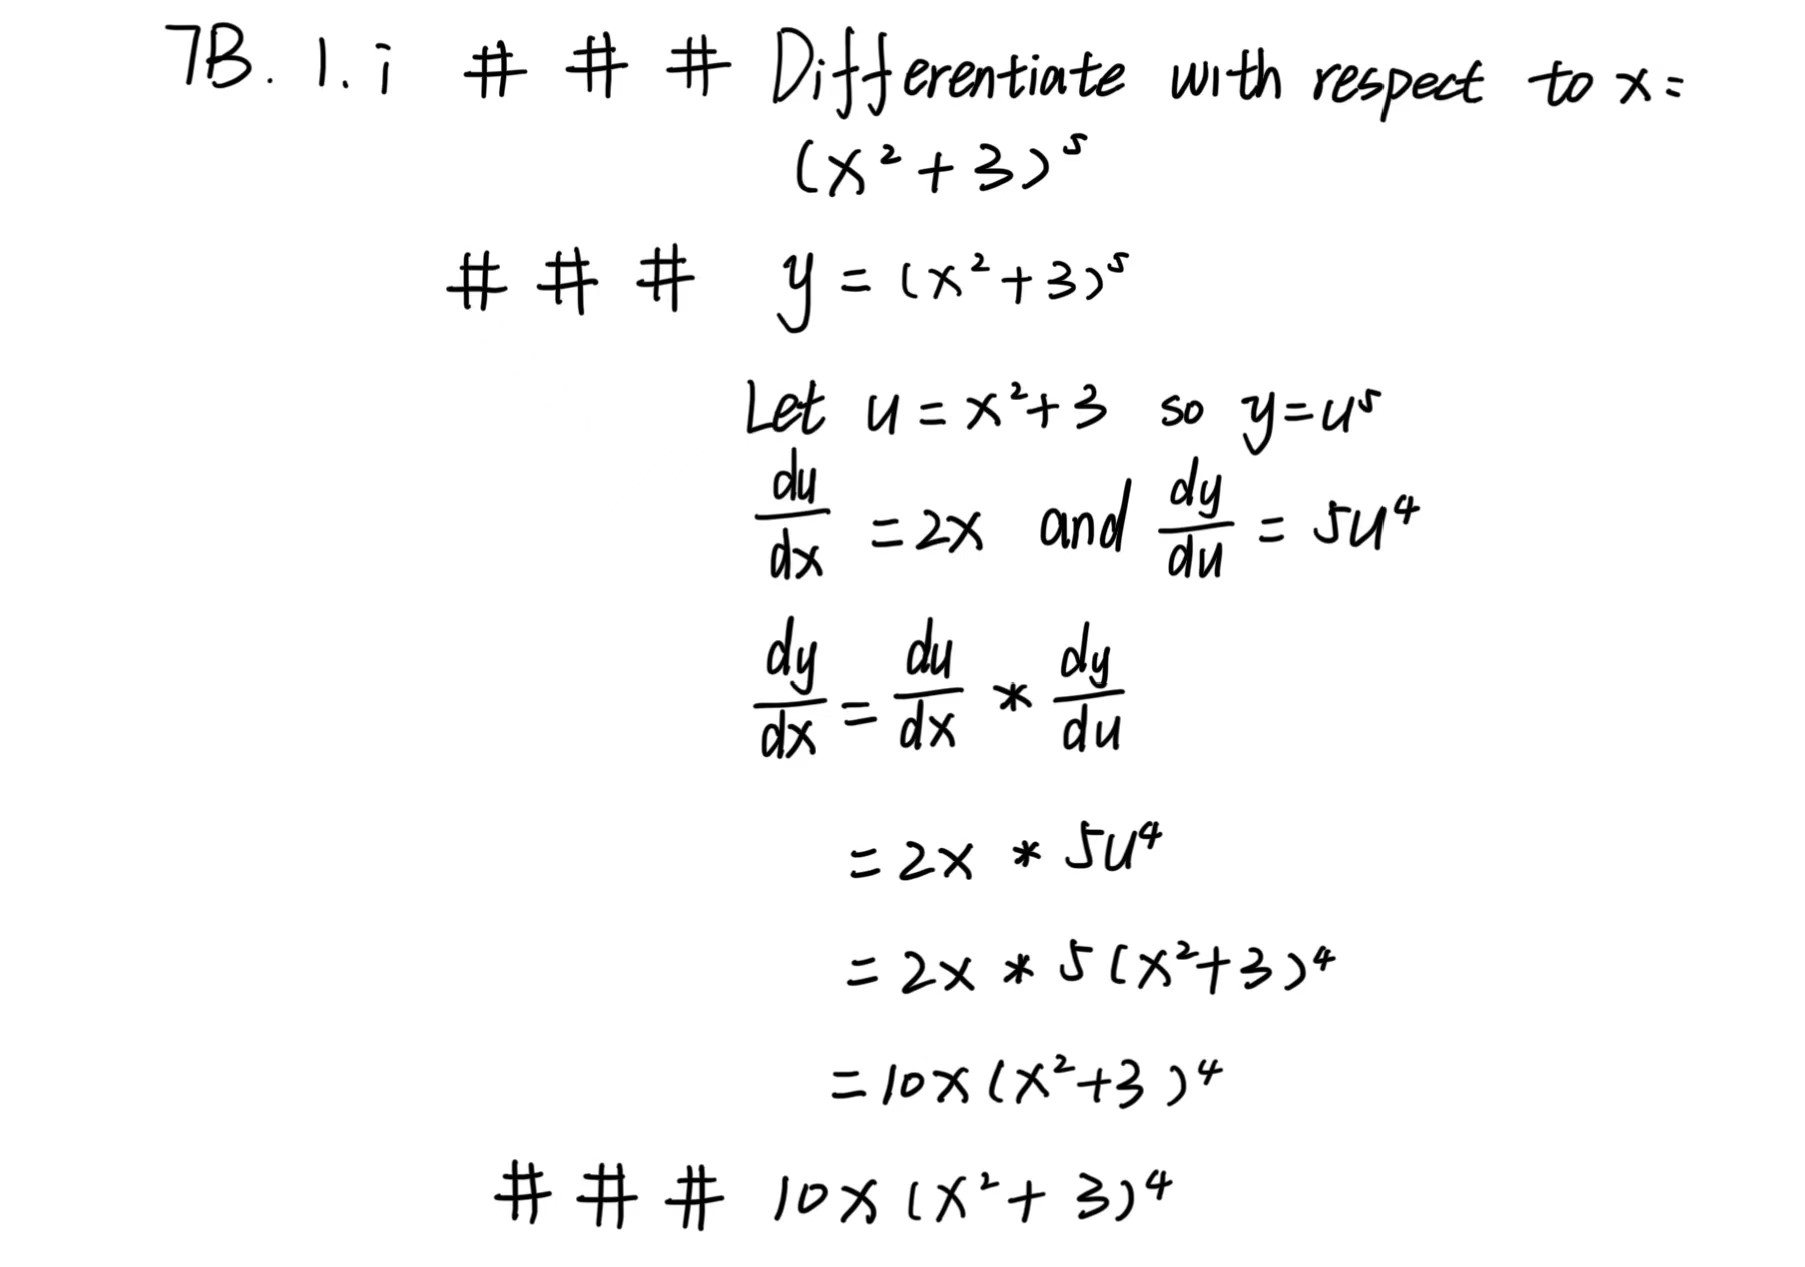 7B. 1. i # # # Differentiate with respect to x =
(x² + 3)⁵
# # # y = (x² + 3)⁵
Let u = x² + 3 so y = u⁵
du/dx = 2x and dy/du = 5u⁴
dy/dx = du/dx * dy/du
= 2x * 5u⁴
= 2x * 5(x² + 3)⁴
= 10x(x² + 3)⁴
# # # 10x(x² + 3)⁴